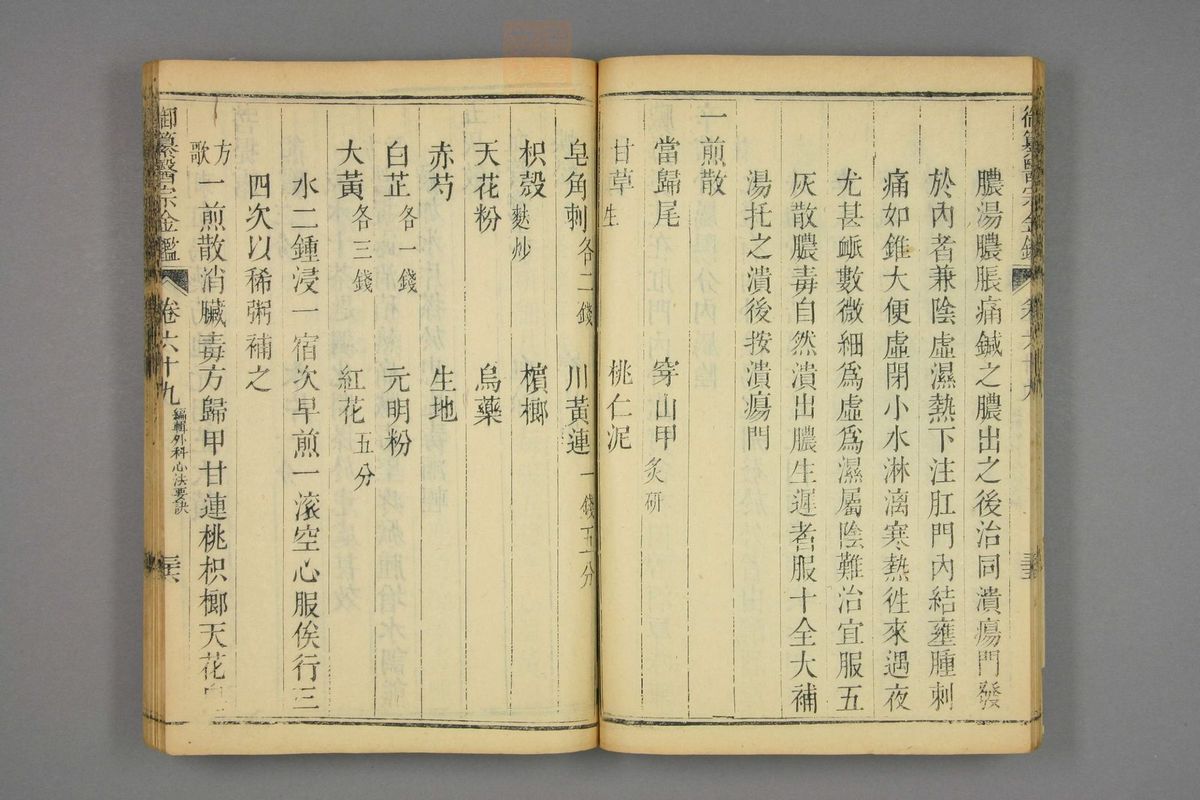 御纂醫宗金鑑
膿湯膿脹痛鍼之膿出之後治同潰瘍門發
於內者兼陰虛濕熱下注肛門內結壅腫刺
痛如錐大便虛閉小水淋漓寒熱徃來遇夜
尤甚衇數微細為虛為濕屬陰難治宜服五
灰散膿毒自然潰出膿生遲者服十全大補
湯托之潰後按潰瘍門
一煎散
當歸尾 穿山甲炙研
甘草生 桃仁泥
皂角刺各二錢 川黃連一錢五分
枳殼麩炒 檳榔
天花粉 烏藥
赤芍 生地
白芷各一錢 元明粉
大黃各三錢 紅花五分
水二鍾浸一宿次早煎一滾空心服俟行三
四次以稀粥補之
方歌 一煎散消臟毒方歸甲甘連桃枳榔天花
御纂醫宗金鑑 卷六十九 編輯外科心法要訣